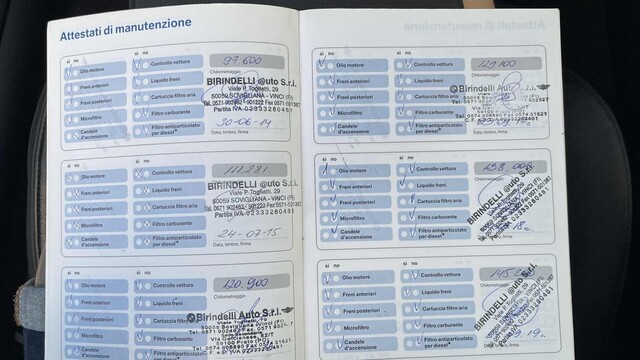 Attestati di manutenzione
si no
Olio motore
Controllo vettura
97.600
Chilometraggio
Freni anteriori
Liquido freni
Freni posteriori
Cartuccia filtro aria
Microfiltro
Filtro carburante
Candele d'accensione
Filtro antiparticolato per diesel*
BIRINDELLI @uto S.r.l.
Viale P. Togliatti, 29
50059 SOVIGLIANA - VINCI (FI)
Partita IVA 02333280481
30-06-14
Data, timbro, firma
si no
Olio motore
Controllo vettura
111.231
Chilometraggio
Freni anteriori
Liquido freni
Freni posteriori
Cartuccia filtro aria
Microfiltro
Filtro carburante
Candele d'accensione
Filtro antiparticolato per diesel*
BIRINDELLI @uto S.r.l.
Viale P. Togliatti, 29
50059 SOVIGLIANA - VINCI (FI)
Partita IVA 02333280481
24-07-15
Data, timbro, firma
si no
Olio motore
Controllo vettura
120.900
Chilometraggio
Freni anteriori
Liquido freni
Freni posteriori
Cartuccia filtro aria
Microfiltro
Filtro carburante
Candele d'accensione
Filtro antiparticolato per diesel*
Birindelli Auto S.r.l.
Viale Togliatti, 29
50059 Sovigliana Vinci (FI)
50100 Prato (PO)
si no
Olio motore
Controllo vettura
129100
Chilometraggio
Freni anteriori
Liquido freni
Freni posteriori
Cartuccia filtro aria
Microfiltro
Filtro carburante
Candele d'accensione
Filtro antiparticolato per diesel*
Birindelli Auto S.r.l.
Data, timbro, firma
si no
Olio motore
Controllo vettura
138.000
Chilometraggio
Freni anteriori
Liquido freni
Freni posteriori
Cartuccia filtro aria
Microfiltro
Filtro carburante
Candele d'accensione
Filtro antiparticolato per diesel*
BIRINDELLI @uto S.r.l.
Viale P. Togliatti, 29
50059 SOVIGLIANA - VINCI (FI)
Partita IVA 02333280481
si no
Olio motore
Controllo vettura
Chilometraggio
Freni anteriori
Liquido freni
Freni posteriori
Cartuccia filtro aria
Microfiltro
Filtro carburante
Candele d'accensione
Filtro antiparticolato per diesel*
BIRINDELLI @uto S.r.l.
Viale P. Togliatti, 29
50059 SOVIGLIANA - VINCI (FI)
Partita IVA 02333280481